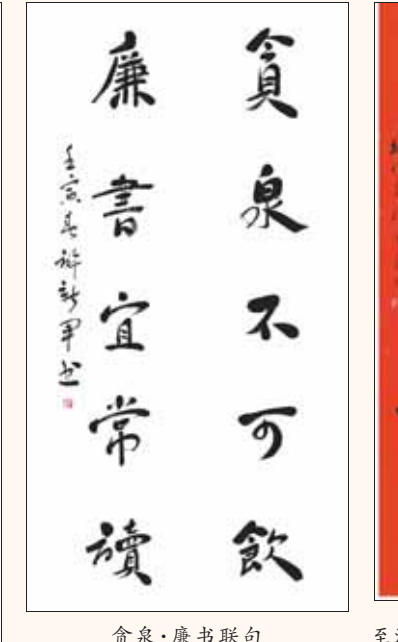 貪泉不可飲
廉書宜常讀
壬寅春許新軍书
贪泉·廉书联句
至